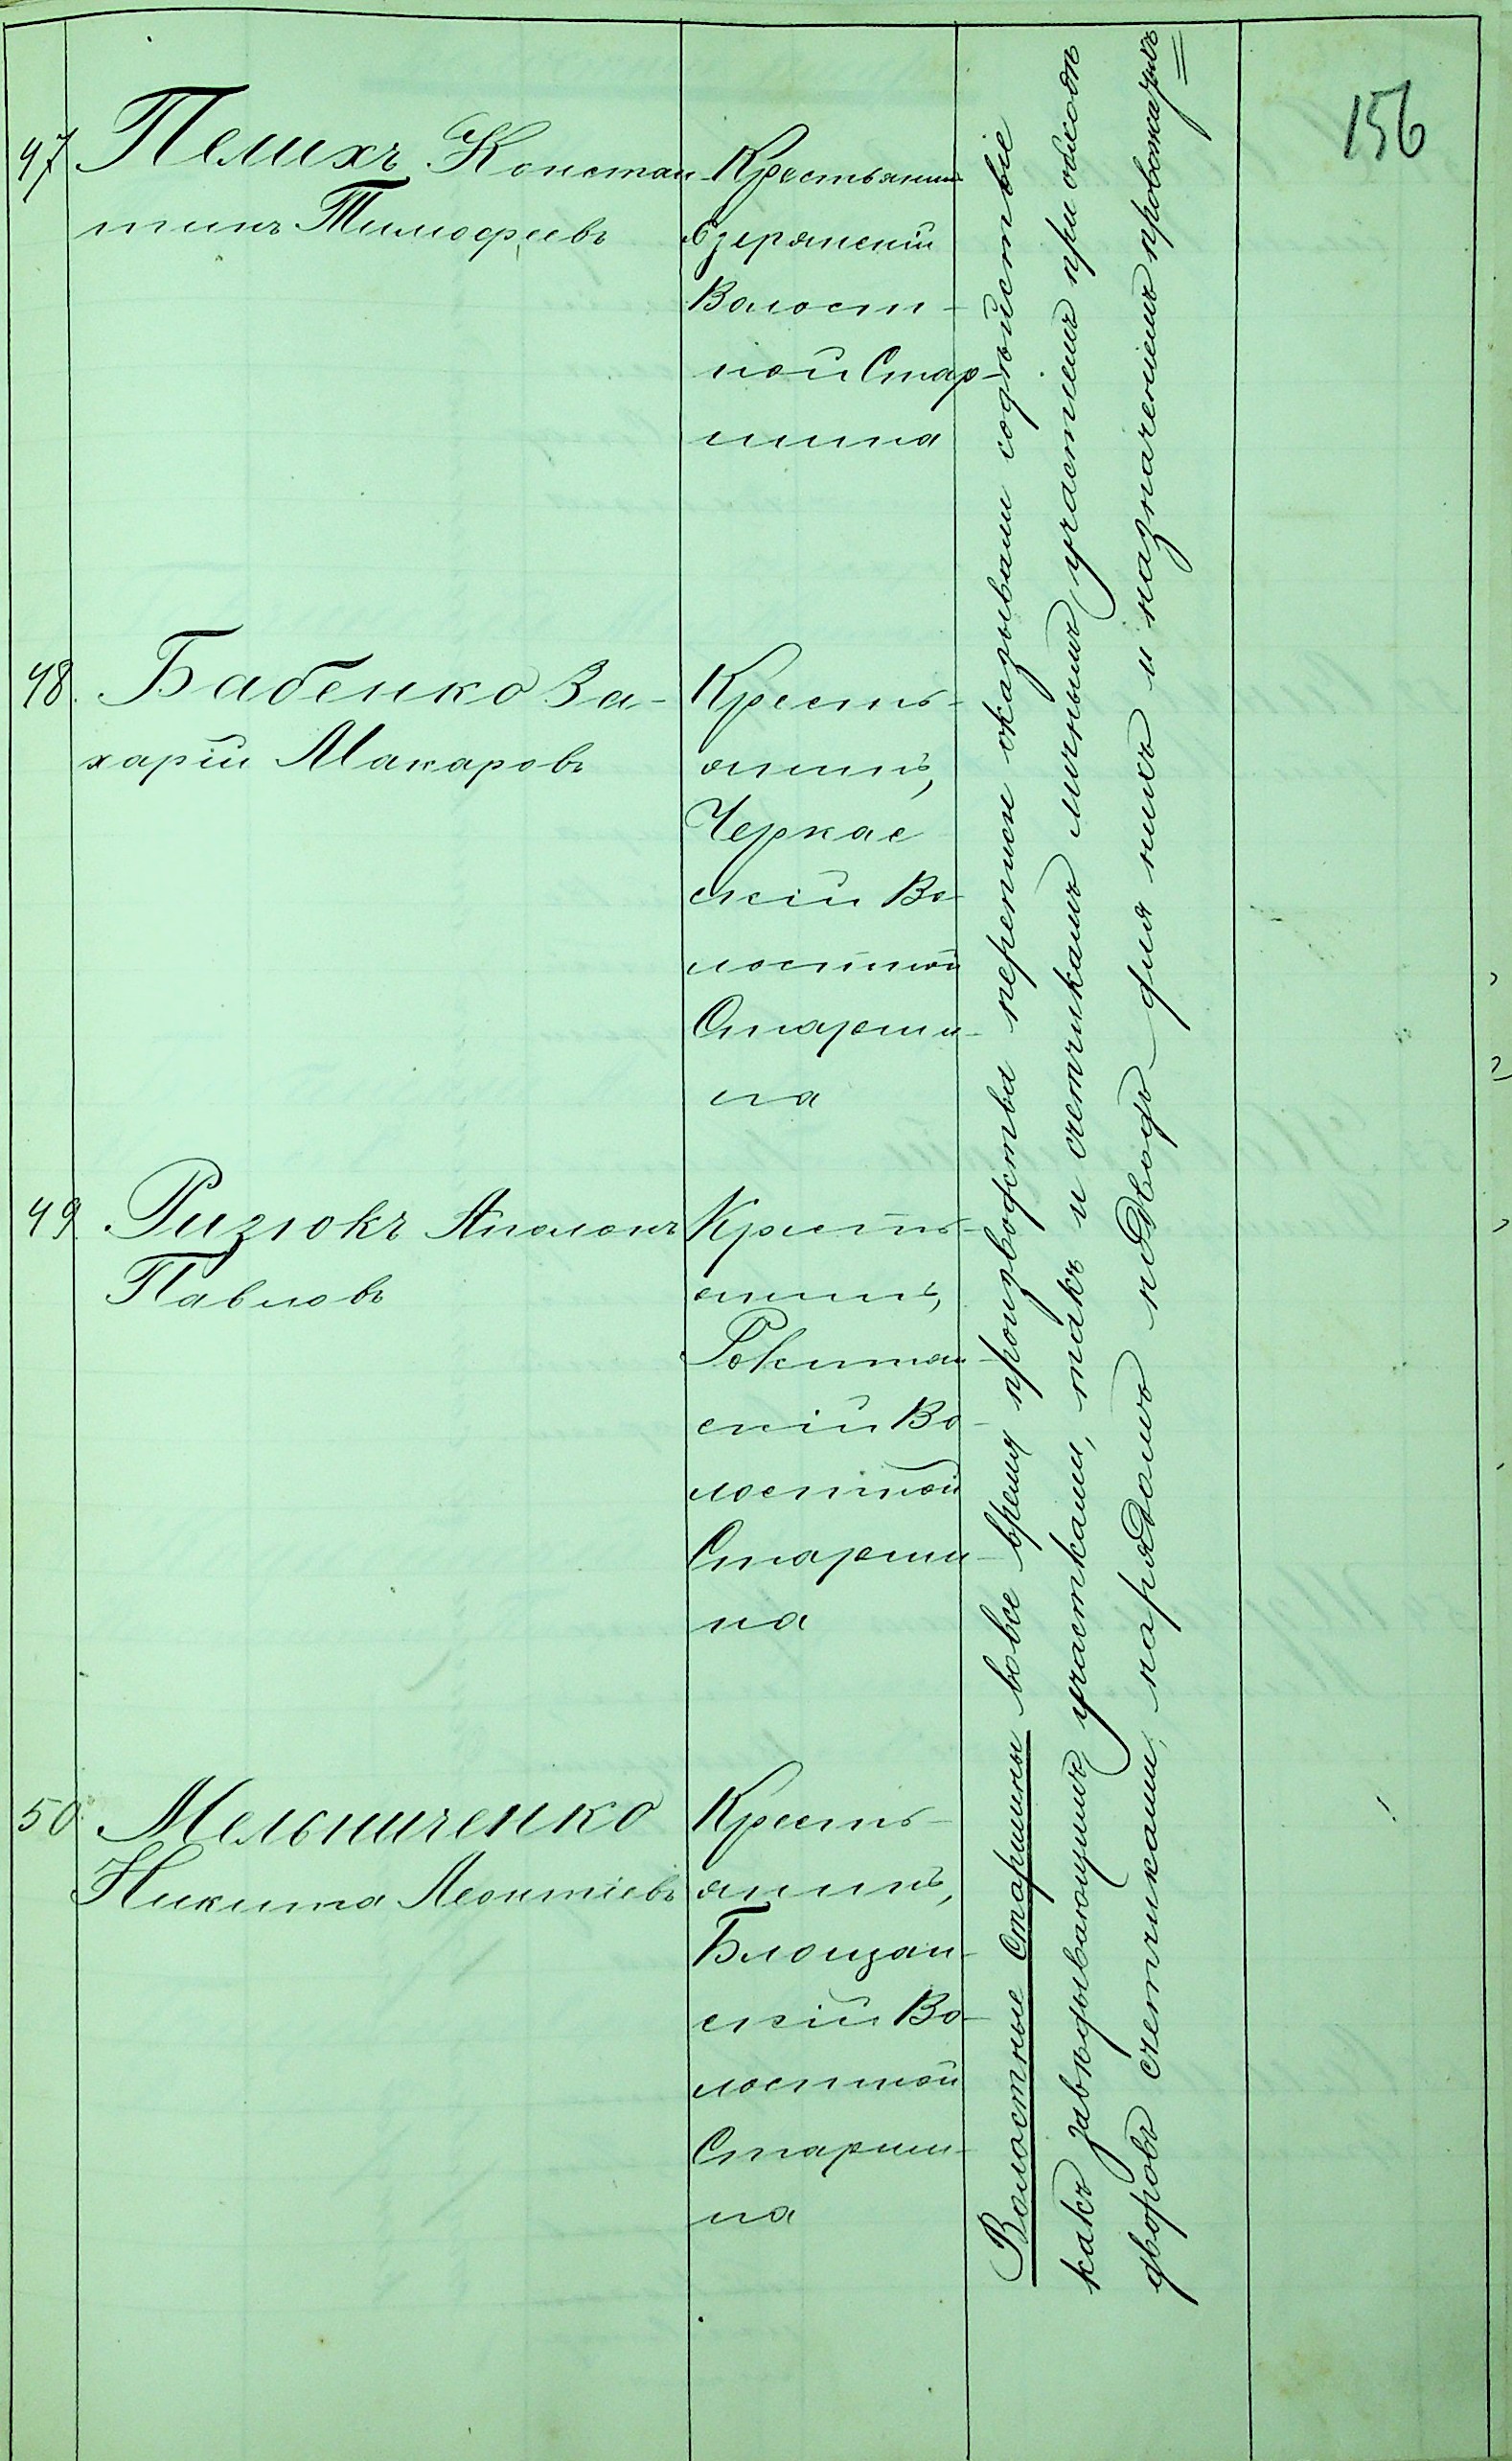 156
47 Пелихъ Констан-
тинъ Тимофеевъ
Крестьянинъ
Озерянскій
Волост-
ной Стар-
шина
48. Бабенко За-
харій Макаровъ
Кресть-
янинъ,
Черкас
скій Во-
лостной
Старши-
на
49. Ризюкъ Аполонъ
Павловъ
Кресть-
янинъ,
Рокитян-
скій Во-
лостной
Старши-
на
50. Мельниченко
Никита Леонтіевъ
Кресть-
янинъ,
Блощан-
скій Во-
лостной
Старши-
на
Волостные Старшины во все время производства переписи оказывали содѣйствіе
какъ завѣдывающимъ участками, такъ и счетчикамъ личнымъ участіемъ при обходѣ
дворовъ счетчиками, нарядомъ подводъ для нихъ и назначеніемъ провожатыхъ